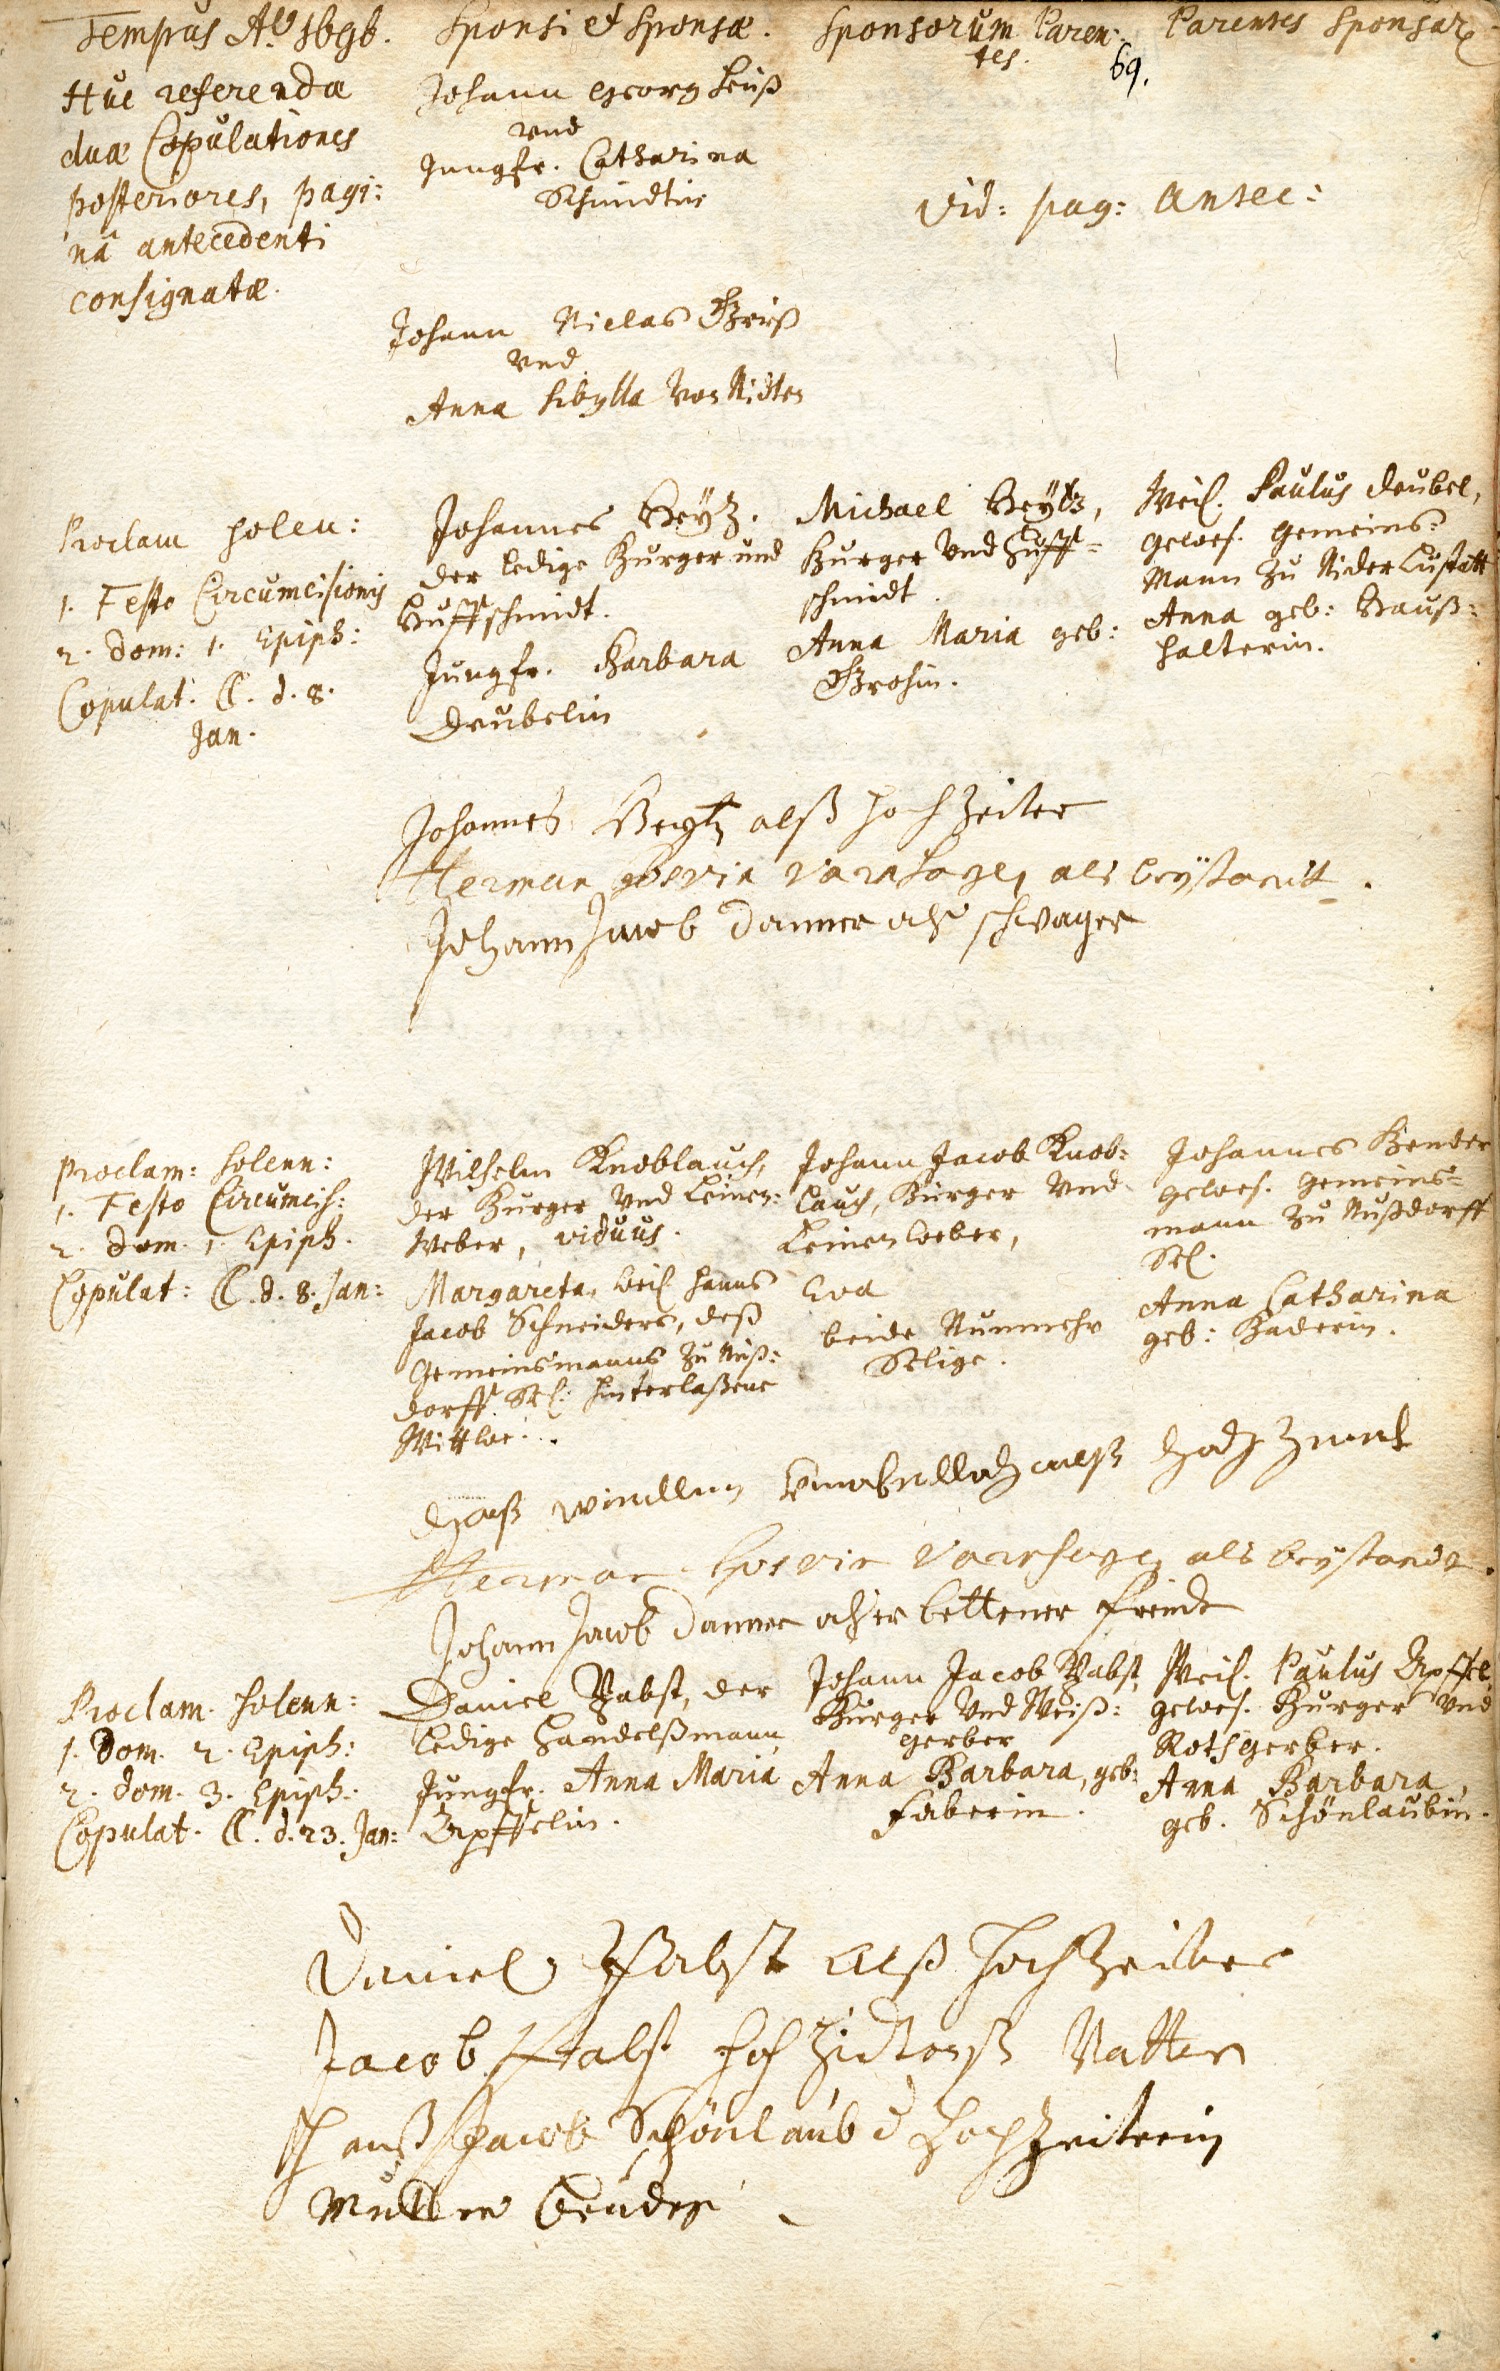 Tempus Aº 1696.
Sponsi et Sponsæ.
Sponsorum Paren:
tes.
Parentes Sponsar.
69.
Huc referendæ
duæ Copulationes
posteriores, pagi:
nâ antecedenti
consignatæ.
Johann Georg Leuß
und
Jungfr. Catharina
Schmidtin
Vid: pag: antec:
Johann Niclas Greiß
und
Anna Sibylla von Nidten
Proclam solen:
1. Festo Circumcisionis
2. Dom: 1. Epiph:
Copulat. C. d. 8.
Jan.
Johannes Heÿtz.
der ledige Burger und
Huffschmidt.
Jungfr. Barbara
Deubelin
Michael Heÿtz,
Burger Und Huff=
schmidt.
Anna Maria geb:
Grohin.
Weil. Paulus Deubel,
gewes. Gemeins=
Mann zu Nider Lustatt
Anna geb: Hauß=
halterin.
Johannes Heÿtz alß Hochzeiter
Herman Goswin Varnhagen als beÿstandt.
Johann Jacob Danner alß schwager
Proclam: solenn:
1. Festo Circumcis:
2. Dom. 1. Epiph.
Copulat: C. d. 8. Jan:
Wilhelm Knoblauch,
der Burger Und Leinen:
Weber, viduus.
Margareta, weil. Hanns
Jacob Schneiders, deß
Gemeinsmanns zu Nuß:
dorff Sel: hinterlaßene
Wittwe.
Johann Jacob Knob:
lauch, Burger Und
Leinenweber,
Eva
beide Nunmehr
Selige.
Johannes Bender
gewes. Gemeins=
mann zu Nußdorff
Sel.
Anna Catharina
geb: Baderin.
Herman Goswin Varnhagen als beystandt.
Johann Jacob Danner alß er bettener freindt
Proclam. solenn:
1. Dom. 2. Epiph:
2. Dom. 3. Epiph:
Copulat. C. d. 23. Jan:
Daniel Pabst, der
ledige Handelßmann
Jungfr. Anna Maria
Apffelin.
Johann Jacob Pabst,
Burger Und Weiß:
gerber
Anna Barbara, geb:
Faberin.
Weil. Paulus Apffel,
gewes. Burger Und
Rothgerber.
Anna Barbara,
geb. Schönlaubin.
Daniel Pabst alß Hochzeiter
Jacob Pabst Hochzidterß Vatter
Hanß Jacob Schönlaub d Hochzeiterin
Mutter bruder